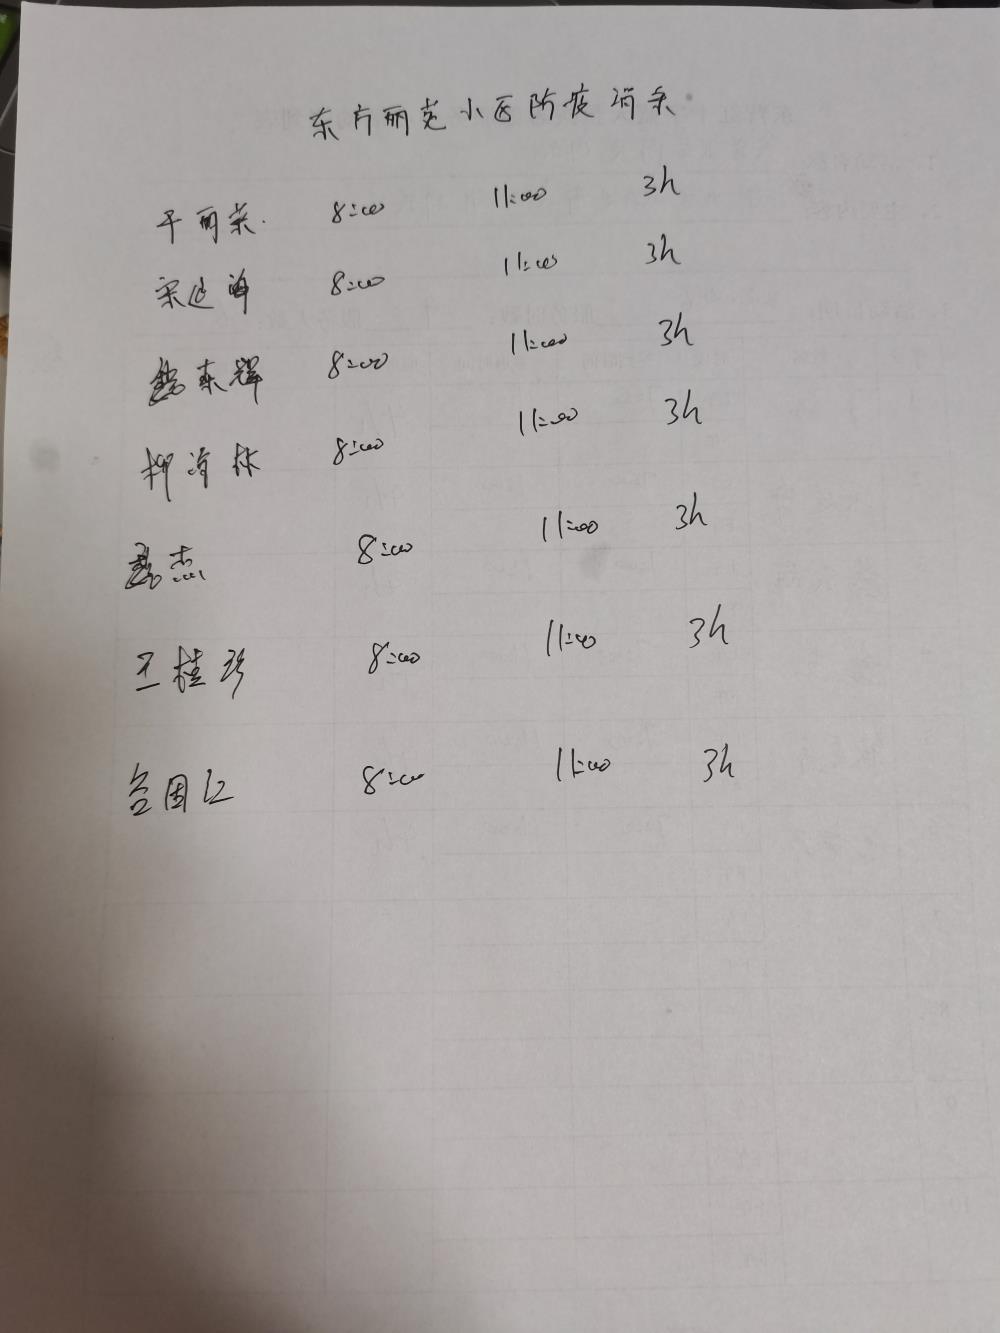 东方丽苑小区防疫消杀
于丽荣 8:00 11:00 3h
宋延海 8:00 11:00 3h
东辉 8:00 11:00 3h
柳海林 8:00 11:00 3h
杰 8:00 11:00 3h
王桂珍 8:00 11:00 3h
国红 8:00 11:00 3h